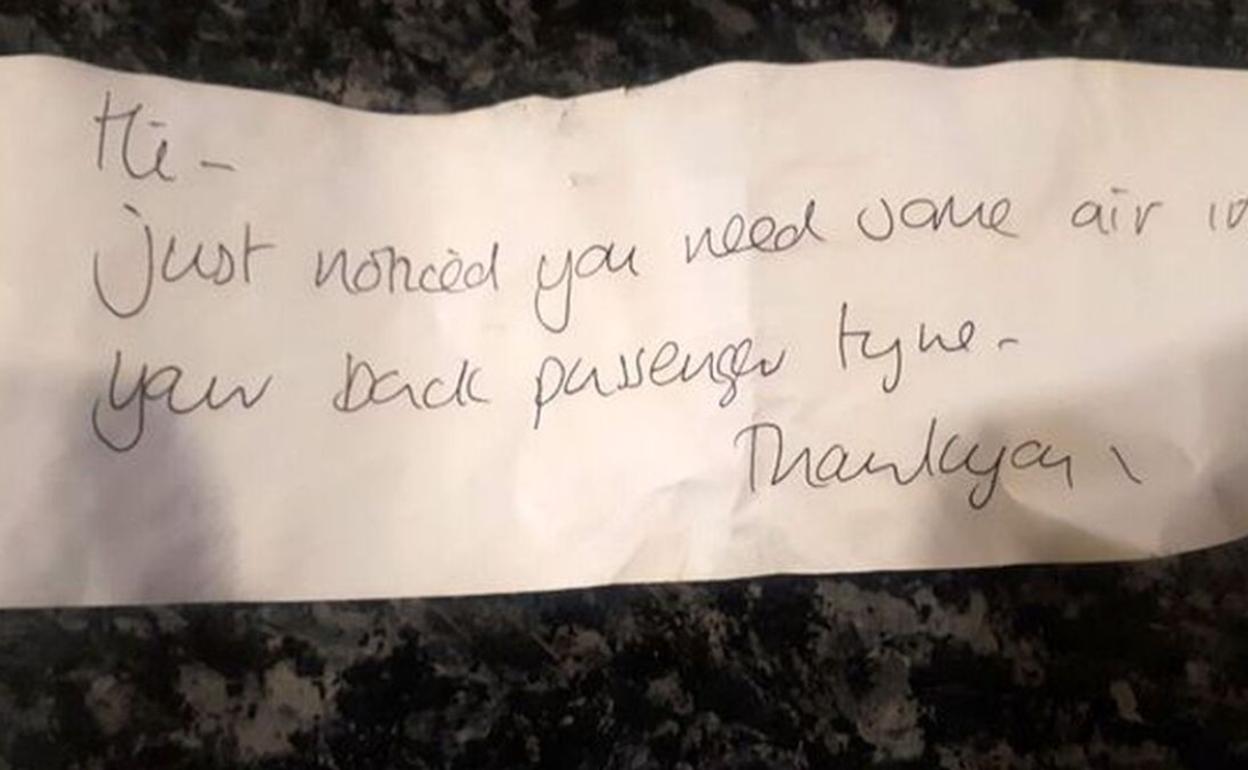 Hi -
Just noticed you need some air in
your back passenger tyre -
Thankyou \